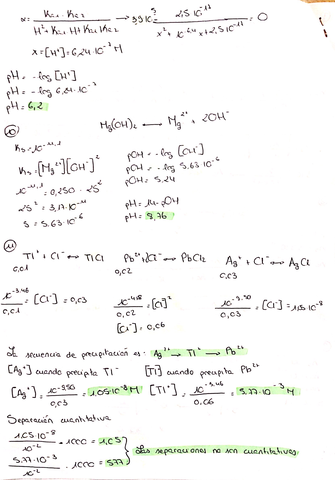 α = Ka1 · Ka2 / H² + Ka1 H + Ka1 Ka2 → 3,310 = 2,5 10⁻¹⁷ / x² + 10⁻⁶·⁴ x + 2,5 10⁻¹⁷ = 0
x = [H⁺] = 6,24 · 10⁻⁷ M
pH = -log [H⁺]
pH = -log 6,24 · 10⁻⁷
pH = 6,2
⑩ Mg(OH)₂ ⟷ Mg²⁺ + 2OH⁻
Ks = 10⁻¹¹·¹
Ks = [Mg²⁺][OH⁻]²
10⁻¹¹·¹ = 0,250 · 2S²
2S² = 3,17 · 10⁻¹¹
S = 5,63 · 10⁻⁶
pOH = -log [OH⁻]
pOH = -log 5,63 · 10⁻⁶
pOH = 5,24
pH = 14 - pOH
pH = 8,76
⑪
Tl⁺ + Cl⁻ ⟷ TlCl Pb²⁺ + 2Cl⁻ ⟷ PbCl₂ Ag⁺ + Cl⁻ ⟷ AgCl
0,01 0,02 0,03
10⁻³·⁴⁶ / 0,01 = [Cl⁻] = 0,03
10⁻⁴·⁸ / 0,02 = [Cl⁻]²
[Cl⁻] = 0,06
10⁻⁹·⁵⁰ / 0,03 = [Cl⁻] = 1,05 · 10⁻⁸
La secuencia de precipitación es: Ag²⁺ → Tl⁺ → Pb²⁺
[Ag⁺] cuando precipita Tl⁻ [Tl] cuando precipita Pb²⁺
[Ag⁺] = 10⁻⁹·⁵⁰ / 0,03 = 1,05 · 10⁻⁸ M [Tl⁺] = 10⁻³·⁴⁶ / 0,06 = 5,77 · 10⁻³ M
Separación cuantitativa
1,05 · 10⁻⁸ / 10⁻² · 1000 = 1,05
5,77 · 10⁻³ / 10⁻² · 1000 = 577
Las separaciones no son cuantitativas